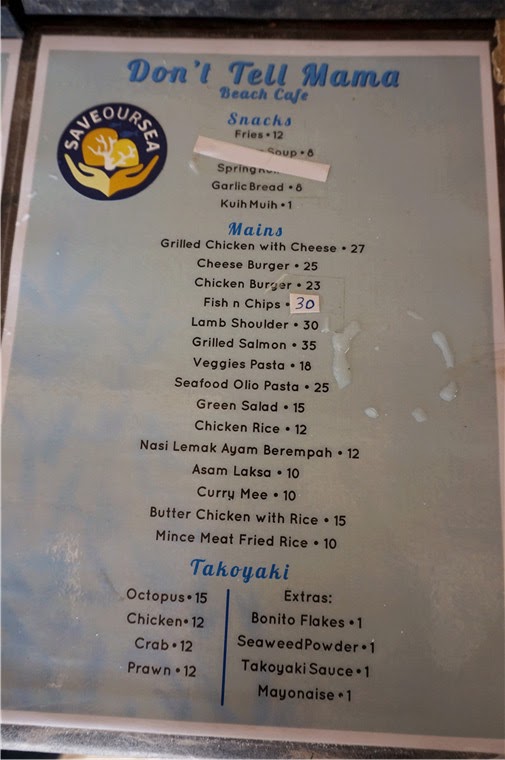 Don't Tell Mama
Beach Cafe
SAVEOURSEA
Snacks
Fries • 12
Soup • 8
Spring
Garlic Bread • 8
Kuih Muih • 1
Mains
Grilled Chicken with Cheese • 27
Cheese Burger • 25
Chicken Burger • 23
Fish n Chips • 30
Lamb Shoulder • 30
Grilled Salmon • 35
Veggies Pasta • 18
Seafood Olio Pasta • 25
Green Salad • 15
Chicken Rice • 12
Nasi Lemak Ayam Berempah • 12
Asam Laksa • 10
Curry Mee • 10
Butter Chicken with Rice • 15
Mince Meat Fried Rice • 10
Takoyaki
Octopus • 15
Chicken • 12
Crab • 12
Prawn • 12
Extras:
Bonito Flakes • 1
Seaweed Powder • 1
Takoyaki Sauce • 1
Mayonaise • 1